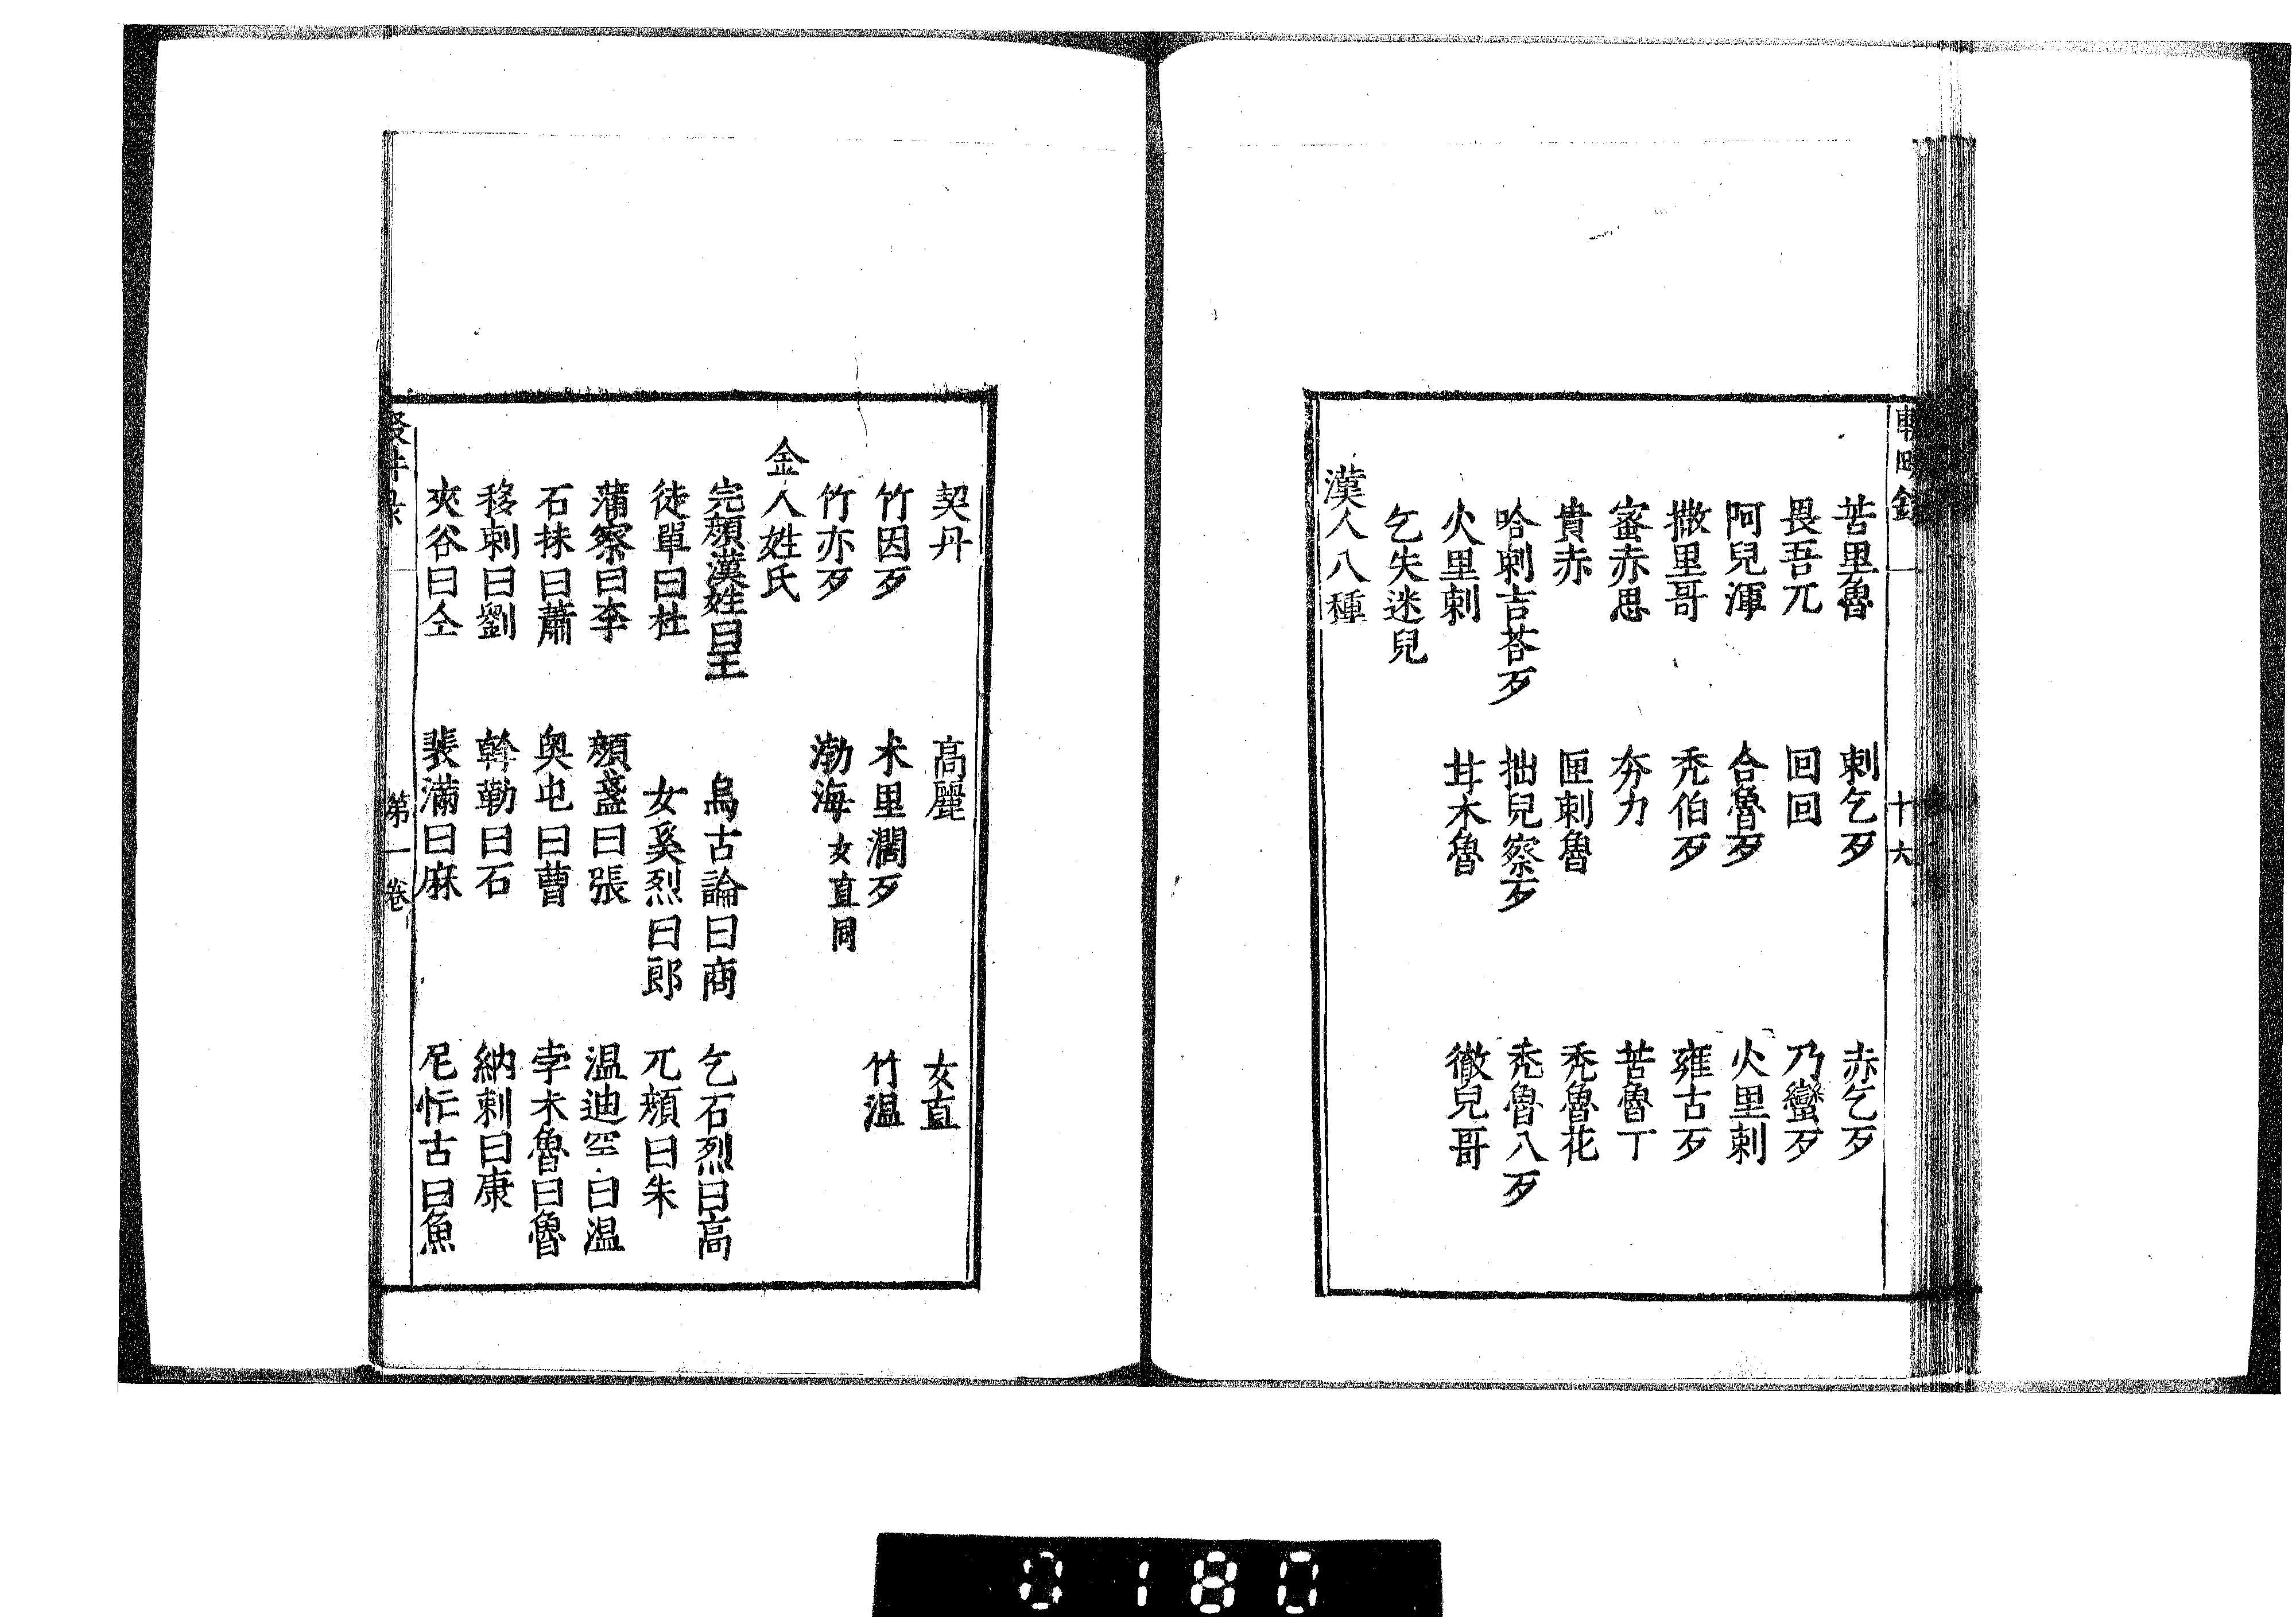 苦里魯 剌乞歹 赤乞歹
畏吾兀 回回 乃蠻歹
阿兒渾 合魯歹 火里剌
撒里哥 禿伯歹 雍古歹
蜜赤思 夯力 苦魯丁
貴赤 匣剌魯 禿魯花
哈剌吉荅歹 拙兒察歹 禿魯八歹
火里剌 甘木魯 徹兒哥
乞失迷兒
漢人八種
契丹 高麗 女直
竹因歹 术里濶歹 竹温
竹亦歹 渤海女直同
金人姓氏
完顔漢姓曰王 烏古論曰商 乞石烈曰高
徒單曰杜 女奚烈曰郎 兀顔曰朱
蒲察曰李 顔盞曰張 温迪罕曰温
石抹曰蕭 奥屯曰曹 孛术魯曰魯
移剌曰劉 斡勒曰石 納剌曰康
夾谷曰仝 裴滿曰麻 尼忙古曰魚
第一卷
十六
0180